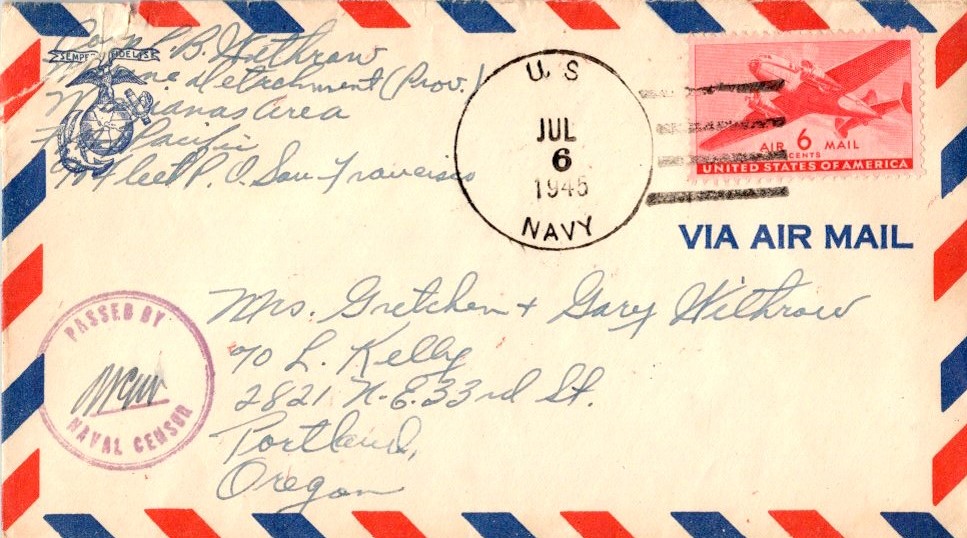 SEMPER FIDELIS
L. B. Withrow
Marine Detachment (Prov.)
Marianas Area
Pacific
Fleet P. O. San Francisco
U. S.
JUL
6
1945
NAVY
AIR 6 MAIL
CENTS
UNITED STATES OF AMERICA
VIA AIR MAIL
Mrs. Gretchen + Gary Withrow
% L. Kelly
2821 N.E. 33rd St.
Portland,
Oregon
PASSED BY
NAVAL CENSOR